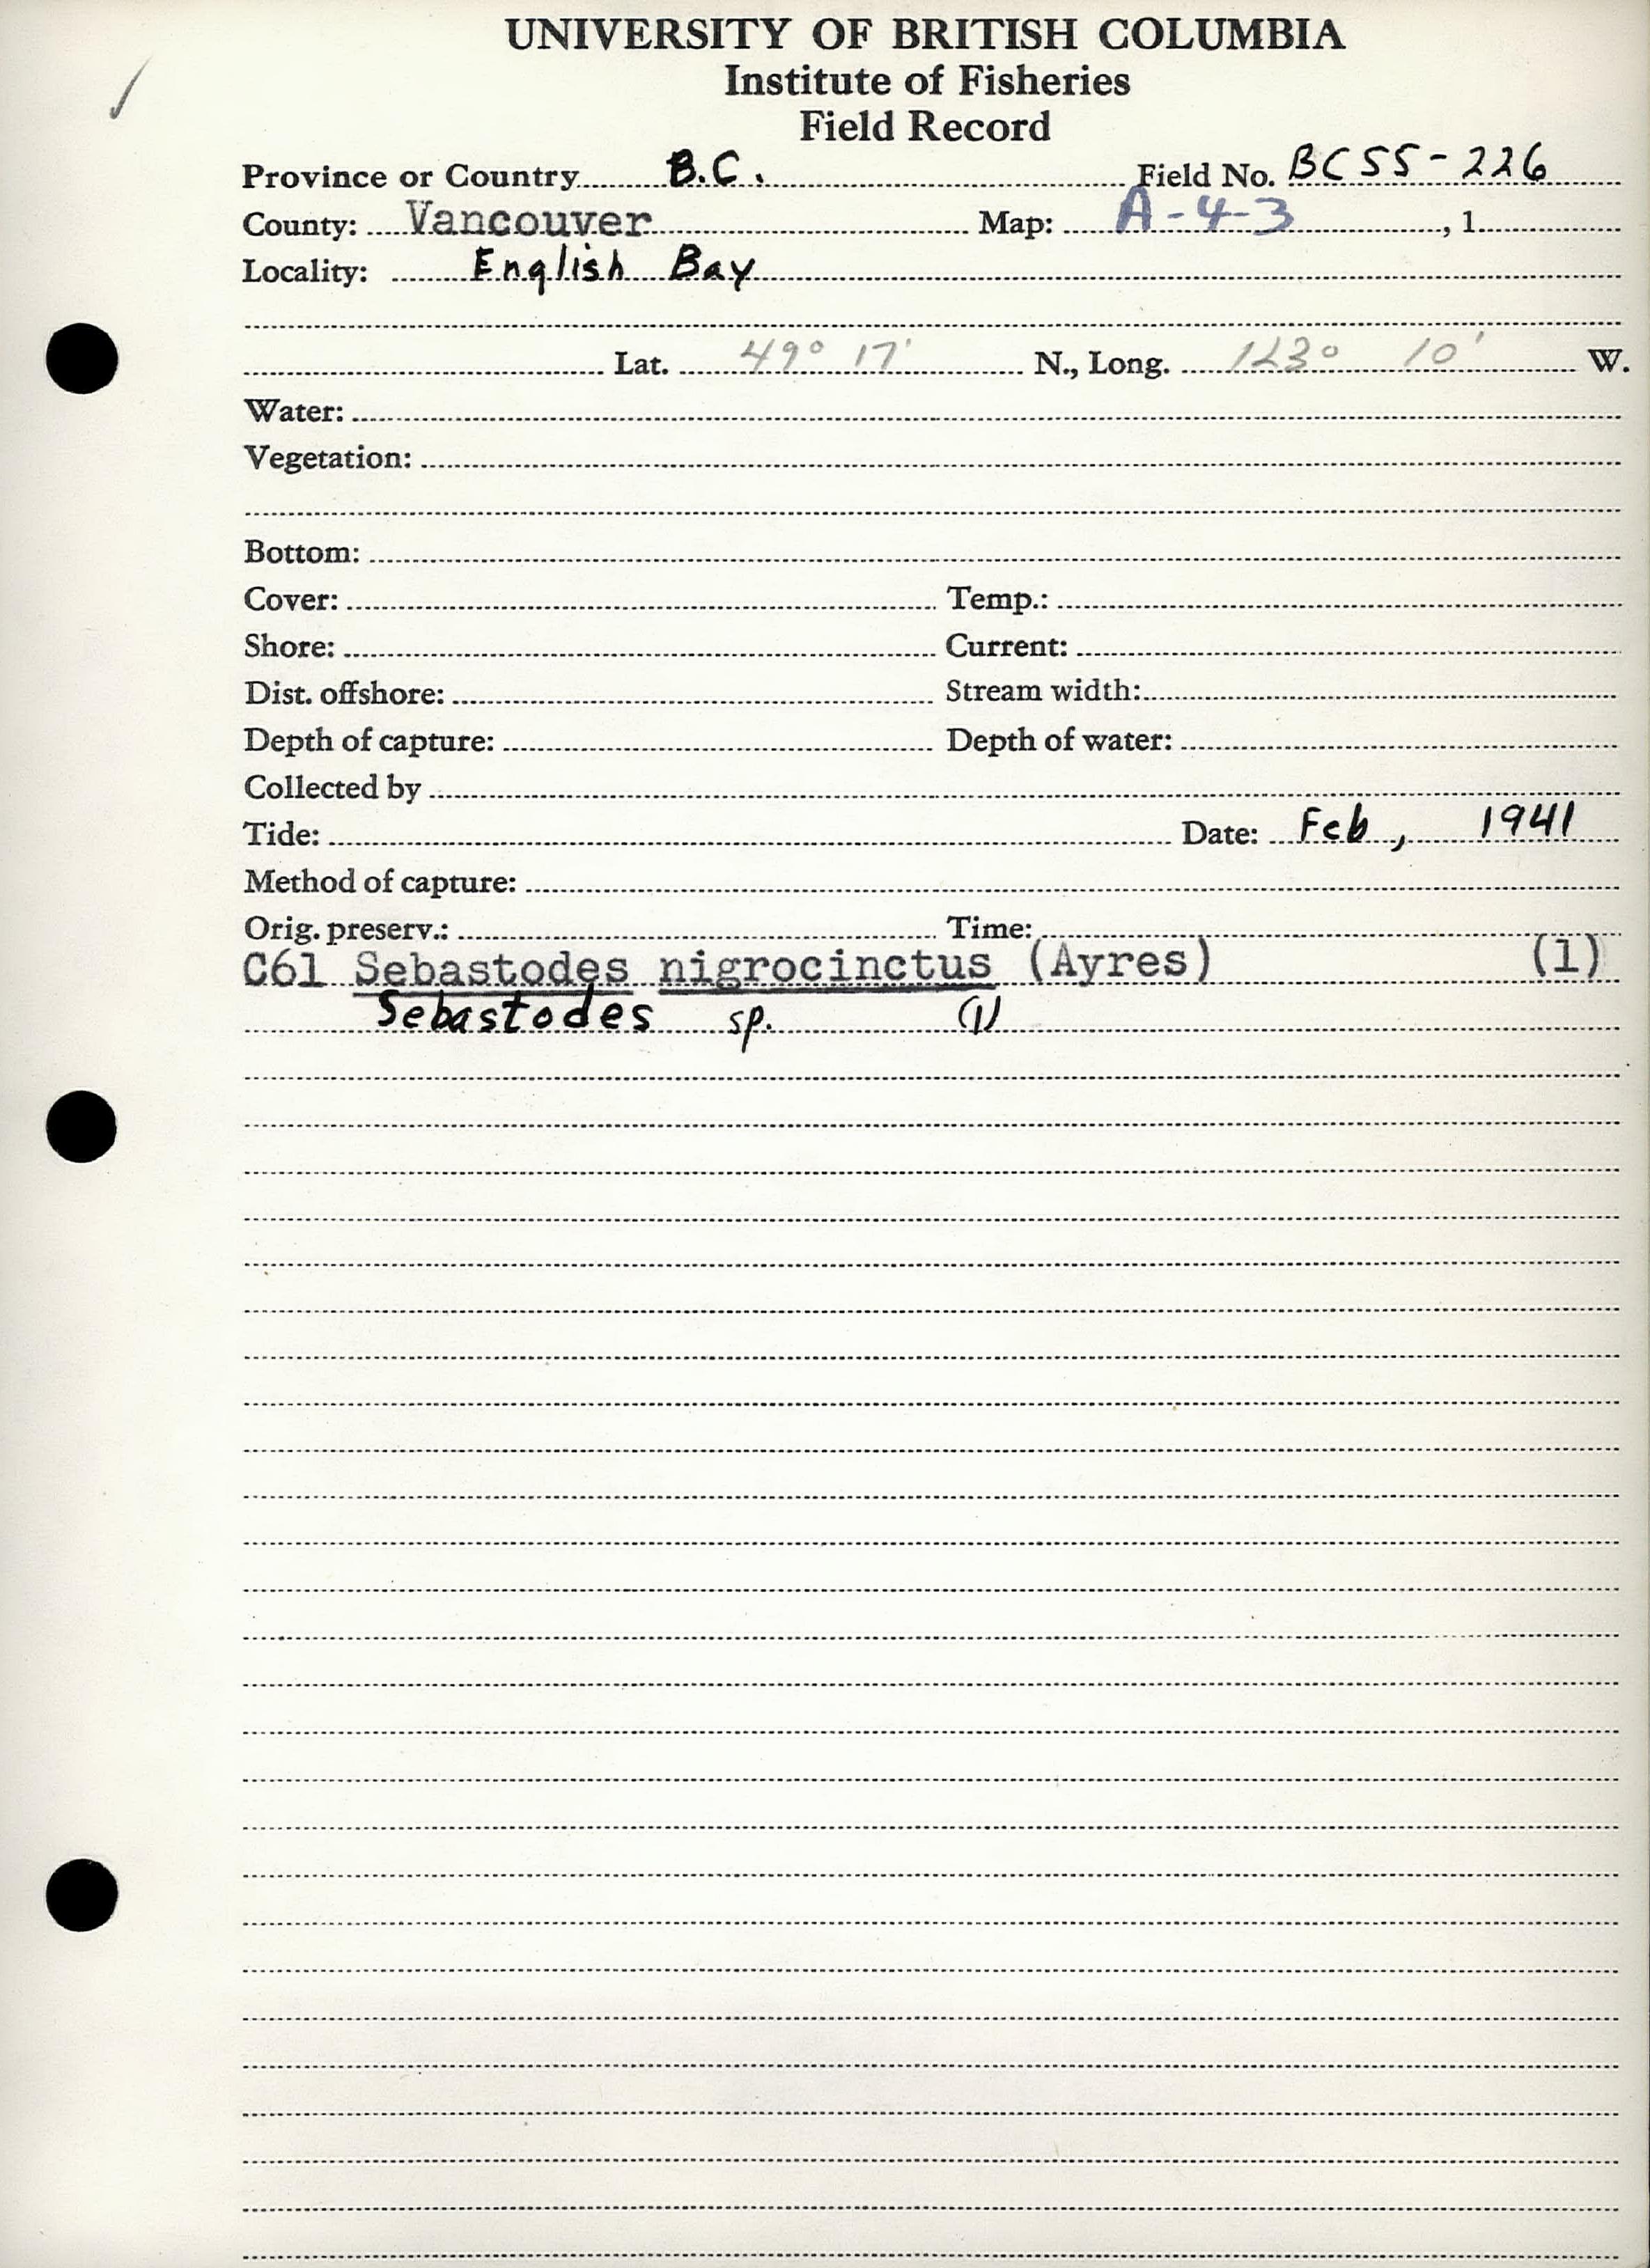 UNIVERSITY OF BRITISH COLUMBIA
Institute of Fisheries
Field Record
Province or Country B.C. Field No. BC55-226
County: Vancouver Map: A-4-3, 1
Locality: English Bay
Lat. 49° 17' N., Long. 123° 10' W.
Water:
Vegetation:
Bottom:
Cover: Temp.:
Shore: Current:
Dist. offshore: Stream width:
Depth of capture: Depth of water:
Collected by
Tide: Date: Feb, 1941
Method of capture:
Orig. preserv.: Time:
C61 Sebastodes nigrocinctus (Ayres) (1)
Sebastodes sp. (1)